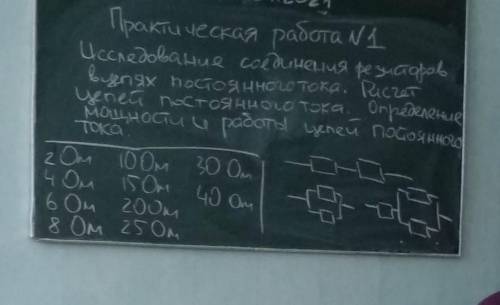 Практическая работа №1
Исследование соединения резисторов
в цепях постоянного тока. Расчет
цепей постоянного тока. Определение
мощности и работы цепей постоянного
тока.
2 Ом 10 Ом 30 Ом
4 Ом 15 Ом 40 Ом
6 Ом 20 Ом
8 Ом 25 Ом